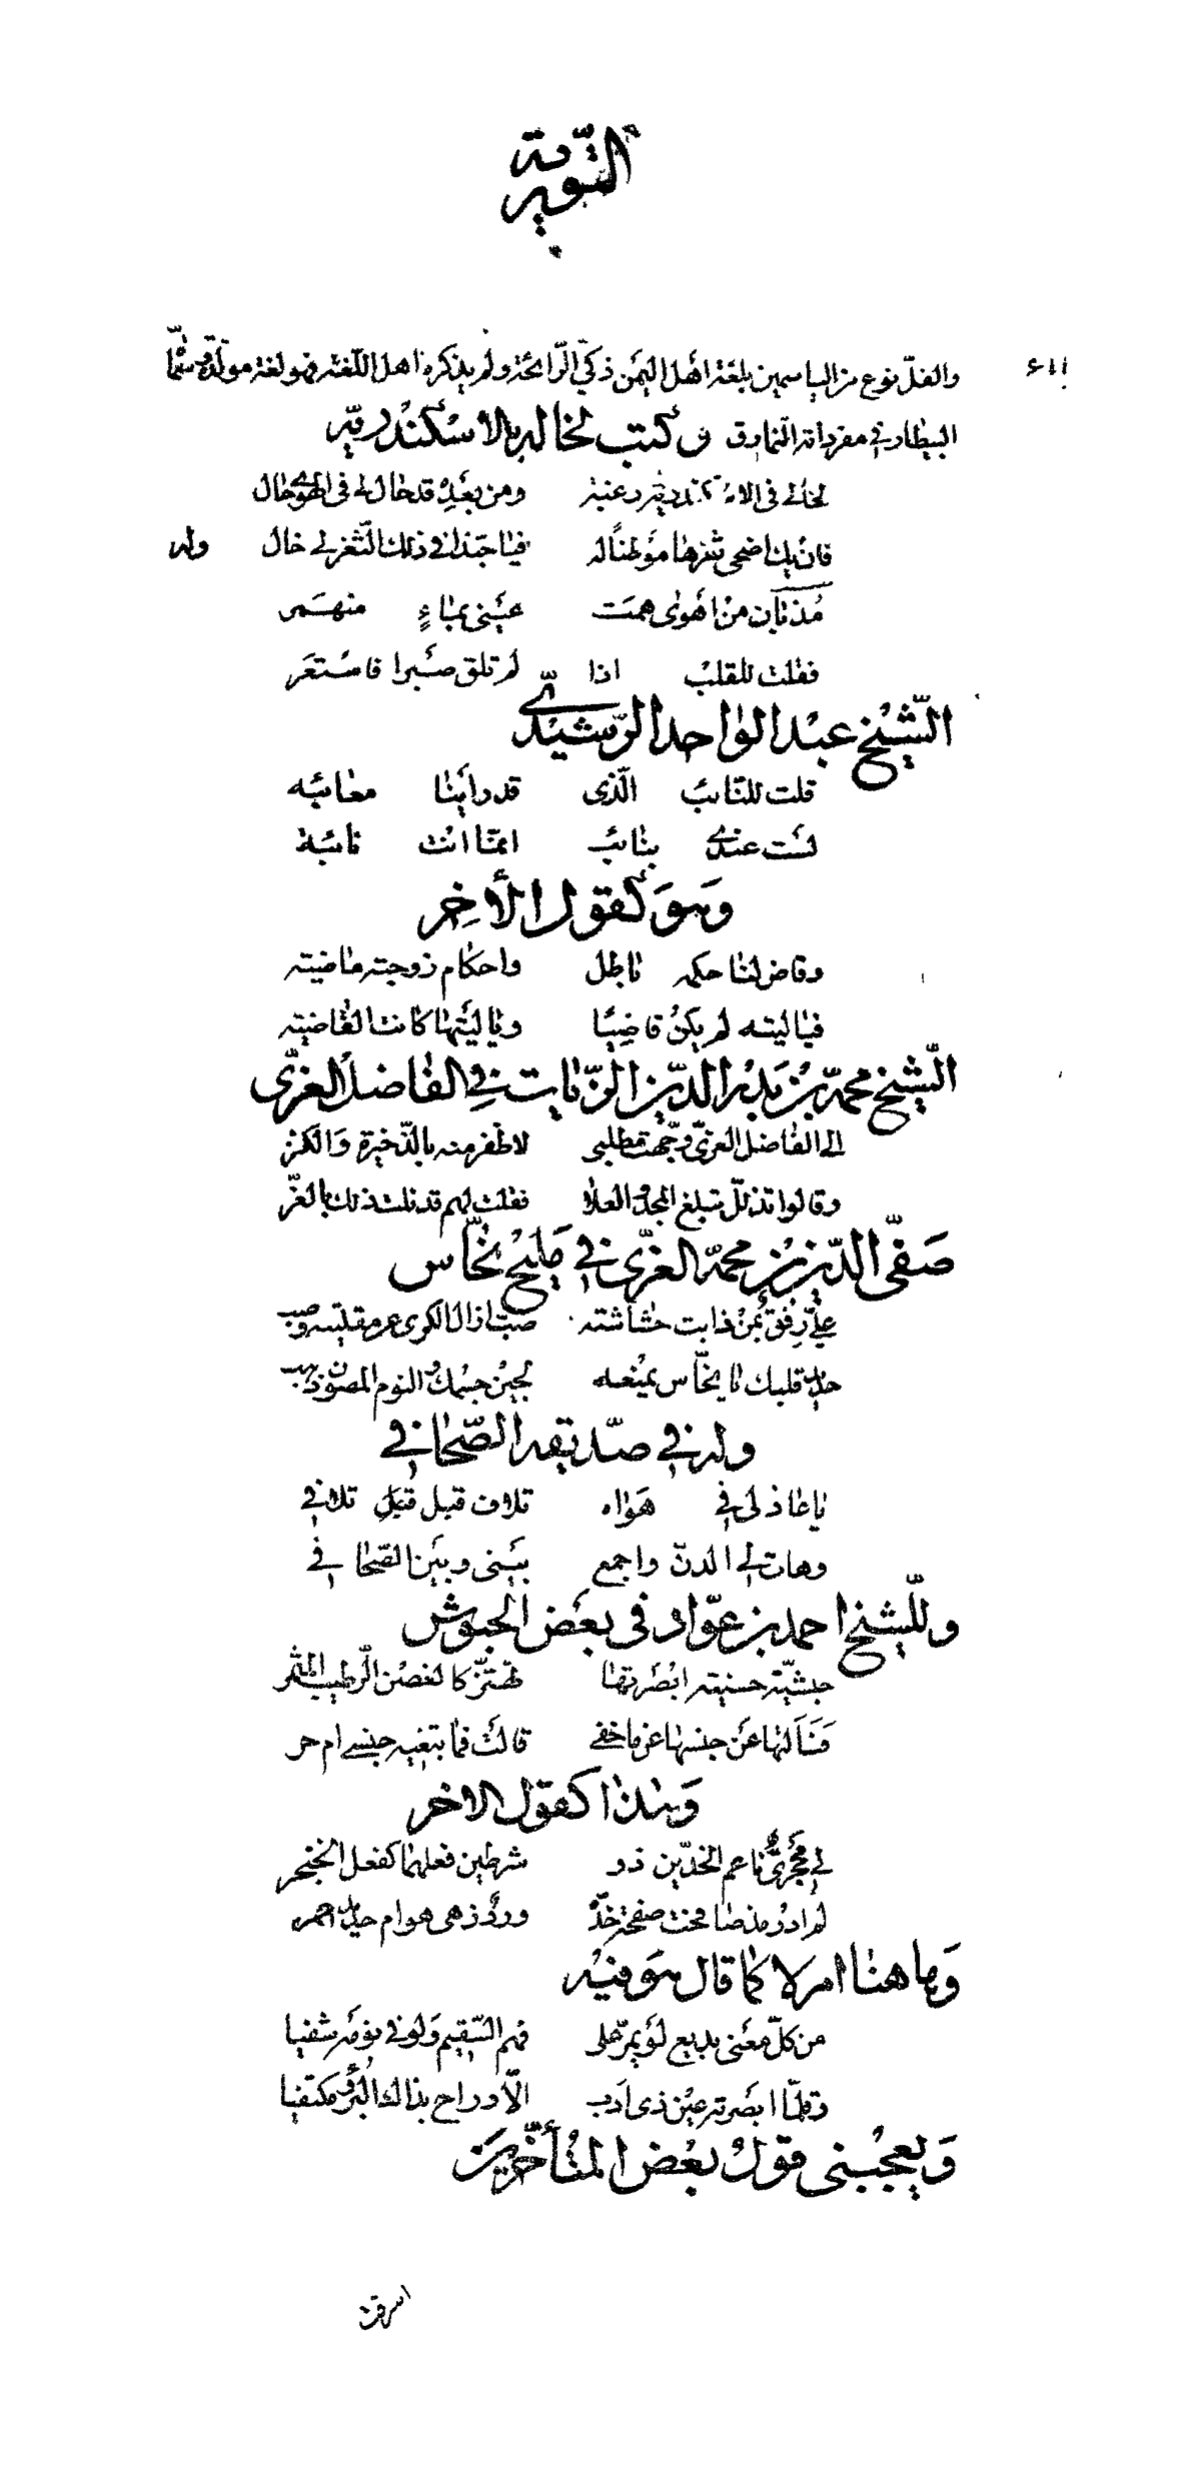 التورية
والفلّ نوع من الياسمين بلغة اهل اليمن ذكيّ الرّائحة ولم يذكره اهل اللّغة فهو لغة مولّدة وسمّاه
البيطار في مفرداته النمارق وكتب لخاله بالاسكندريّة
لخالي في الاسكندرية رغبة ومن بعده قد حال لي في الهوى حال
فان يك اضحى ثغرها موطنًا له فيا حبّذا في ذلك الثّغر لي خال وله
مذ بان من اهوى همت عيني بماءٍ منهمر
فقلت للقلب اذا لم تلق صبرا فاستعر
الشّيخ عبد الواحد الرّشيدي
قلت للنّائب الّذي قد رأينا معائبه
لست عندي بنائب امّا انت نائبة
وهو كقول الأخر
وقاض لنا حكمه باطل واحكام زوجته ماضيته
فيا ليته لم يكن قاضيًا ويا ليتها كانت القاضيته
الشّيخ محمد بن بدر الدّين الزّيات في الفاضل الغزّي
الى الفاضل الغزيّ وجّهت مطلبي لاظفر منه بالذّخيرة والكنز
وقالوا تذلّل تبلغ المجد والعلا فقلت لهم قد نلت ذلك بالغزّ
صفيّ الدّين بن محمد الغزّي في مليح نحّاس
على رفق بمن ذابت حشاشته صبّ ازال الكرى عن مقلتيه وصب
حديد قلبك يا نحّاس يمنعه لجين جسمك والنوم المصون ذهب
وله في صديقه الصّحافي
يا عاذلي في هواه تلاف قبل تلافي
وهات لي الدنّ واجمع بيني وبين الصّحافي
وللشّيخ احمد بن عوّاد في بعض الحبوش
حبشيّة حسنية ابصرتها تهتزّ كالغصن الرّطيب المثمر
فسألتها عن جنسها عن ما خفي قالت فما تبغيه جنسي ام حر
وهذا كقول الاخر
لي محجريّ ناعم الخدّين ذو شرطين فعلهما كفعل الخنجر
لم ادر مذ صافحت صفحة خدّه ورد زهى هو ام حديد احمر
وها هنا امر لا كما قال هو فيه
من كلّ معنى بديع لو يمرّ على فهم السّقيم ولو في نومه شفيا
وقلّما ابصرته عين ذي ادب الّا وراح بذاك البرء مكتفيا
ويعجبني قول بعض المتأخّرين